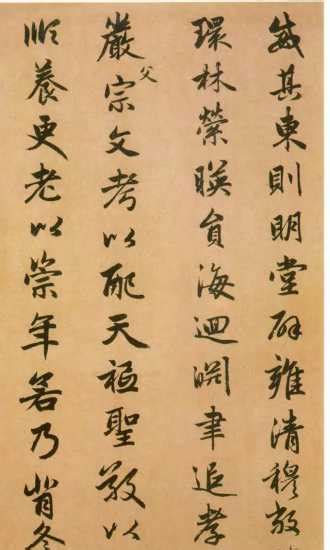 威其東則明堂辟雍清穆敞
環林縈暎員海迴淵聿追孝
嚴父宗文考以配天祗聖敬以
順養更老以崇年若乃背冬